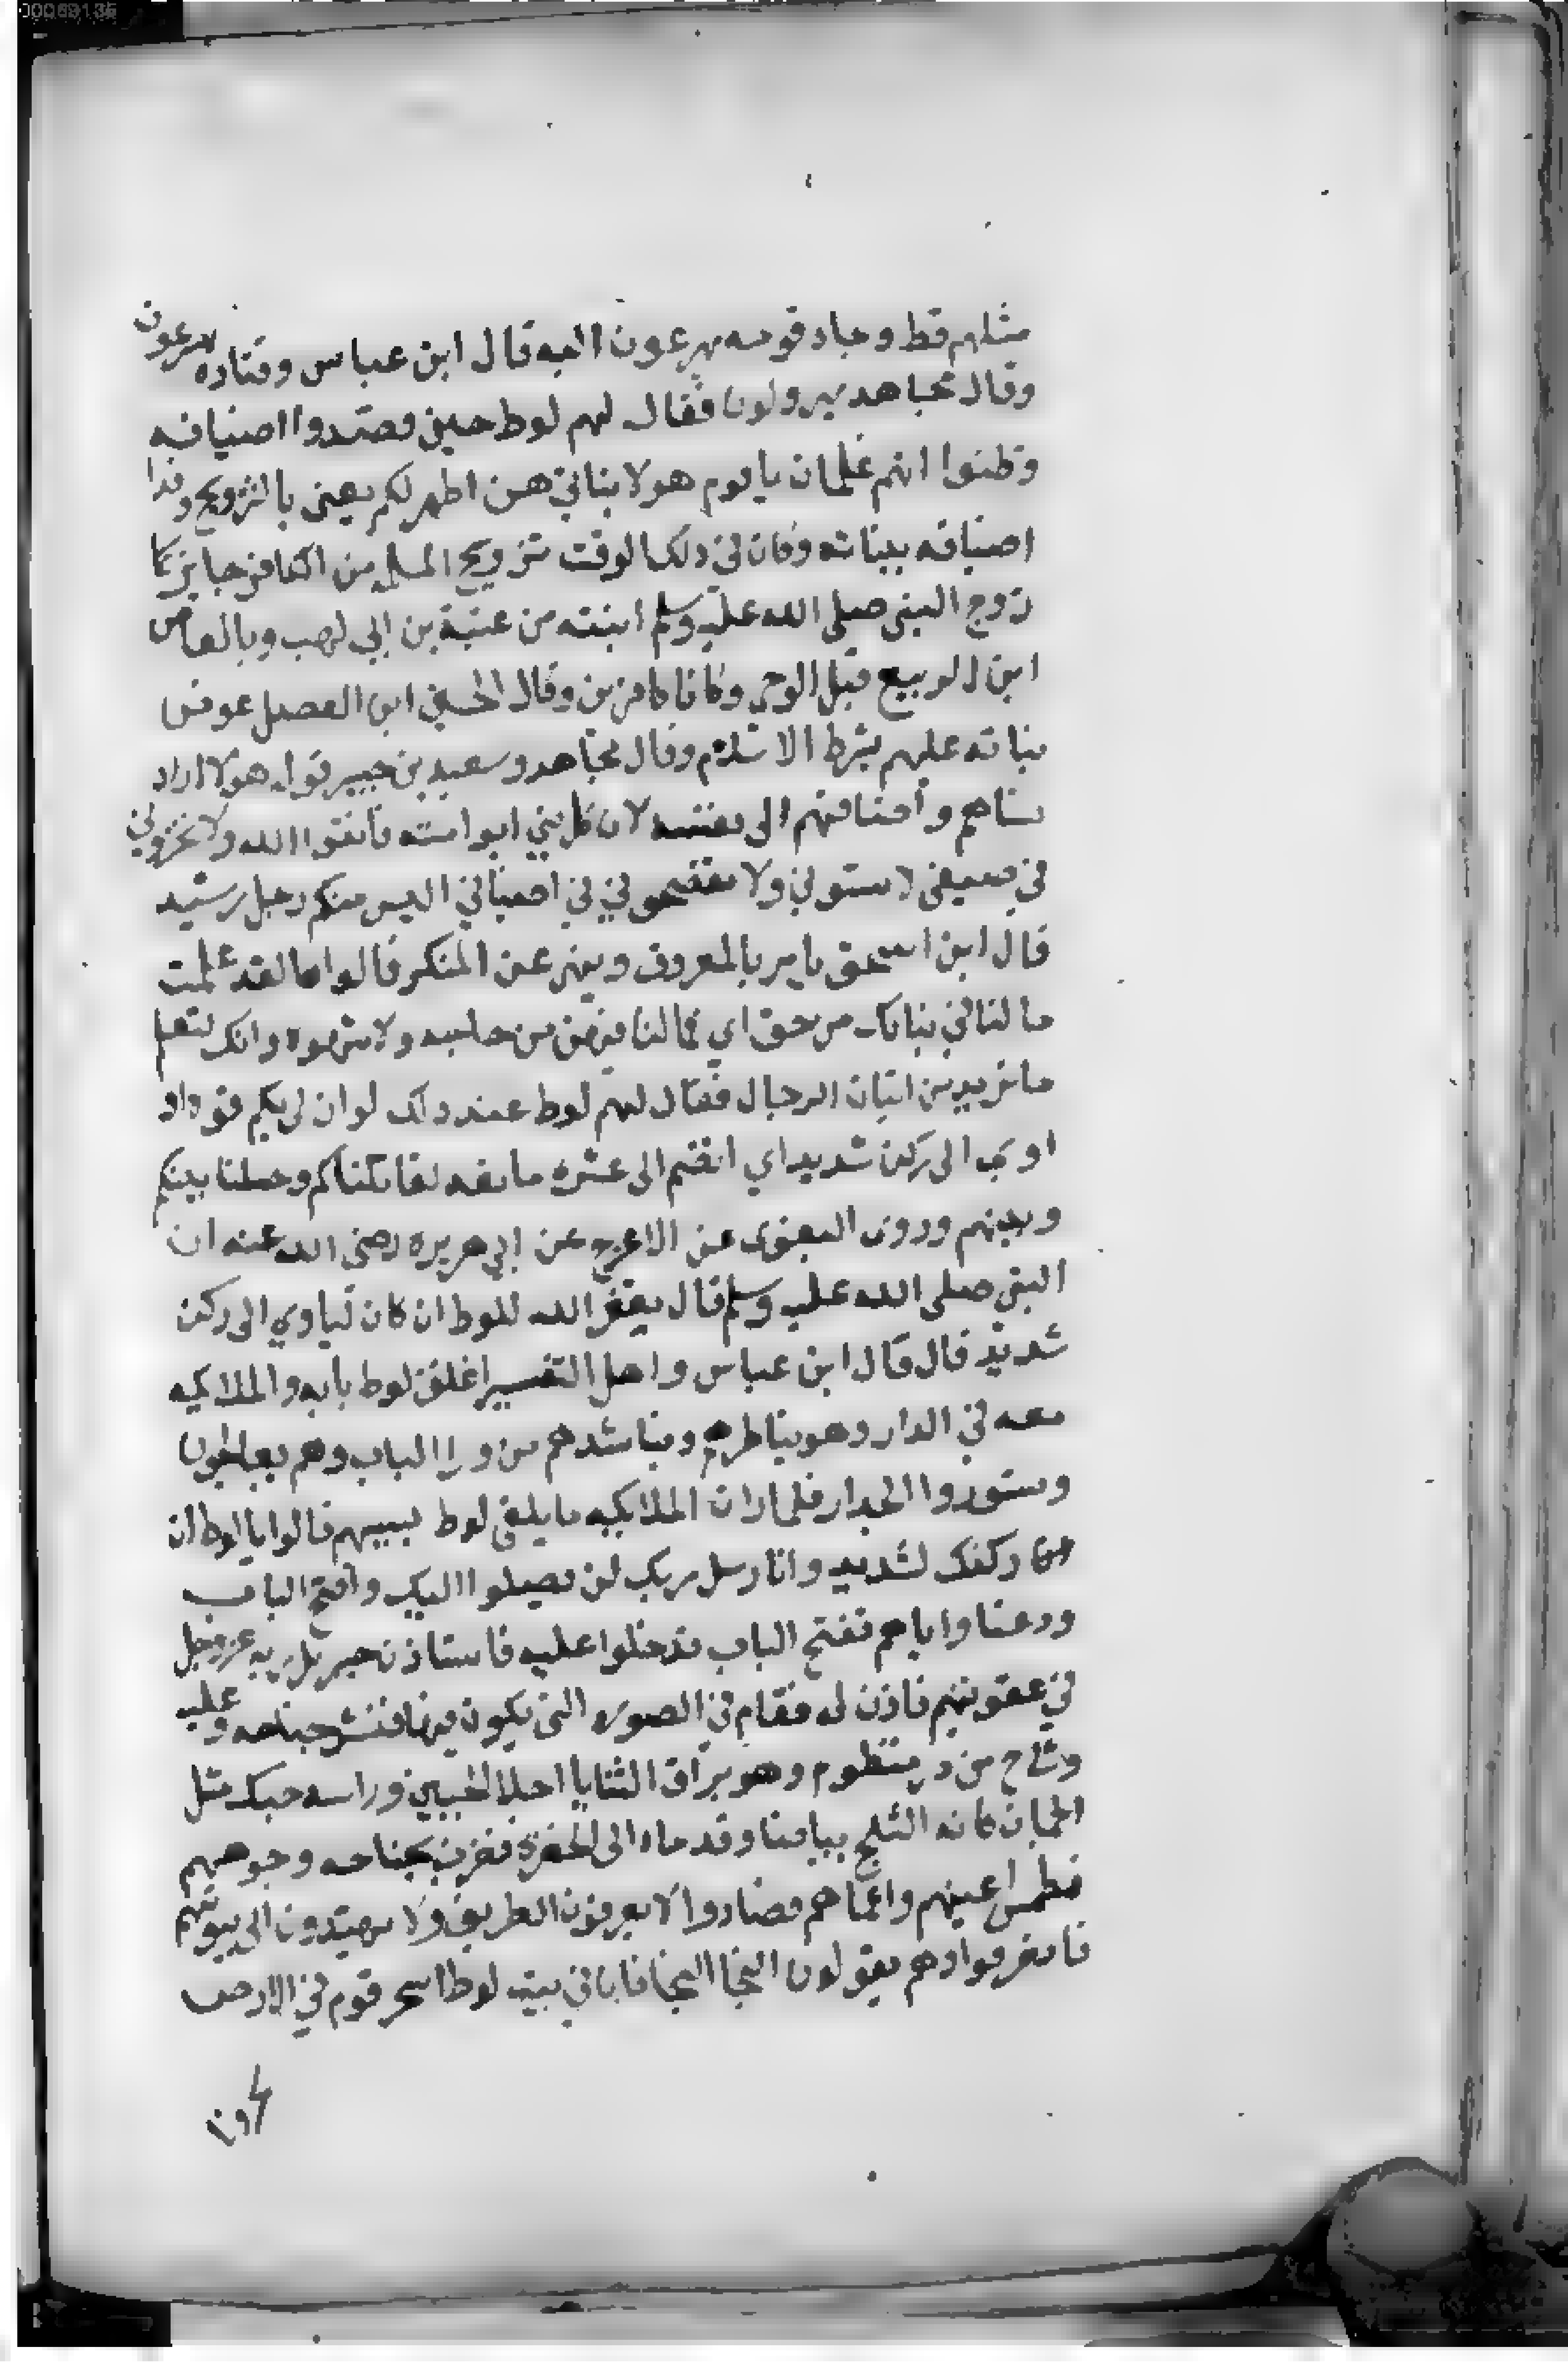 00069135
مثلهم قط وجاء قومه يهرعون اليه قال ابن عباس وقتاده يسرعون
وقال مجاهد يهرولون فقال لهم لوط حين قصدوا اضيافه
وظنوا انهم غلمان يا قوم هولا بناتي هن اطهر لكم يعني بالتزويج وفدا
اضيافه ببناته وكان في ذلك الوقت تزويج المسلمه من الكافر جايز كما
زوج النبي صلى الله عليه وسلم ابنته من عتبة بن ابي لهب وبالعاص
ابن الربيع قبل الوحي وكانا كافرين وقال الحسين ابن الفضل عرض
بناته عليهم بشرط الاسلام وقال مجاهد وسعيد بن جبير قوله هولا اراد
نساهم واضافهم الى نفسه لان كل نبي ابوامته فاتقوا الله ولا تخزوني
في ضيفي لا تسوني ولا تفضحوني في اضيافي اليس منكم رجل رشيد
قال ابن اسحق يامر بالمعروف وينهى عن المنكر قالوا لقد علمت
ما لنا في بناتك من حق اي مالنا فيهن من حاجه ولا شهوه وانك لتعلم
ما نريد من اتيان الرجال فقال لهم لوط عند ذلك لو ان لي بكم قوه او
اوي الى ركن شديد اي انضم الى عشيره مانعه لقاتلناكم وحلنا بينكم
وبينهم وروى البغوي عن الاعرج عن ابي هريره رضى الله عنه ان
النبي صلى الله عليه وسلم قال يغفر الله للوط ان كان لياوي الى ركن
شديد قال قال ابن عباس واهل التفسير اغلق لوط بابه والملايكه
معه في الدار وهو يناظرهم ويناشدهم من ورا الباب وهم يعالجون
وتسوروا الجدار فلما رات الملايكه ما يلقى لوط بسببهم قالوا يا لوط ان
ركنك لشديد وانا رسل ربك لن يصلوا اليك وافتح الباب
ودعنا واياهم ففتح الباب فدخلوا عليه فاستاذن جبريل ربه عز وجل
في عقوبتهم فاذن له فقام في الصوره التى يكون فيها فنشر جناحه وعليه
وشاح من در منظوم وهو براق الثنايا اجلا الجبين وراسه حبك مثل
الجمان كانه الثلج بياضا وقدماه الى الخضرة فضرب بجناحه وجوههم
فطمس اعينهم واعماهم فصاروا لا يعرفون الطريق ولا يهتدون الى بيوتهم
فانصرفوا وهم يقولون النجا النجا فان في بيت لوط اسحر قوم في الارض